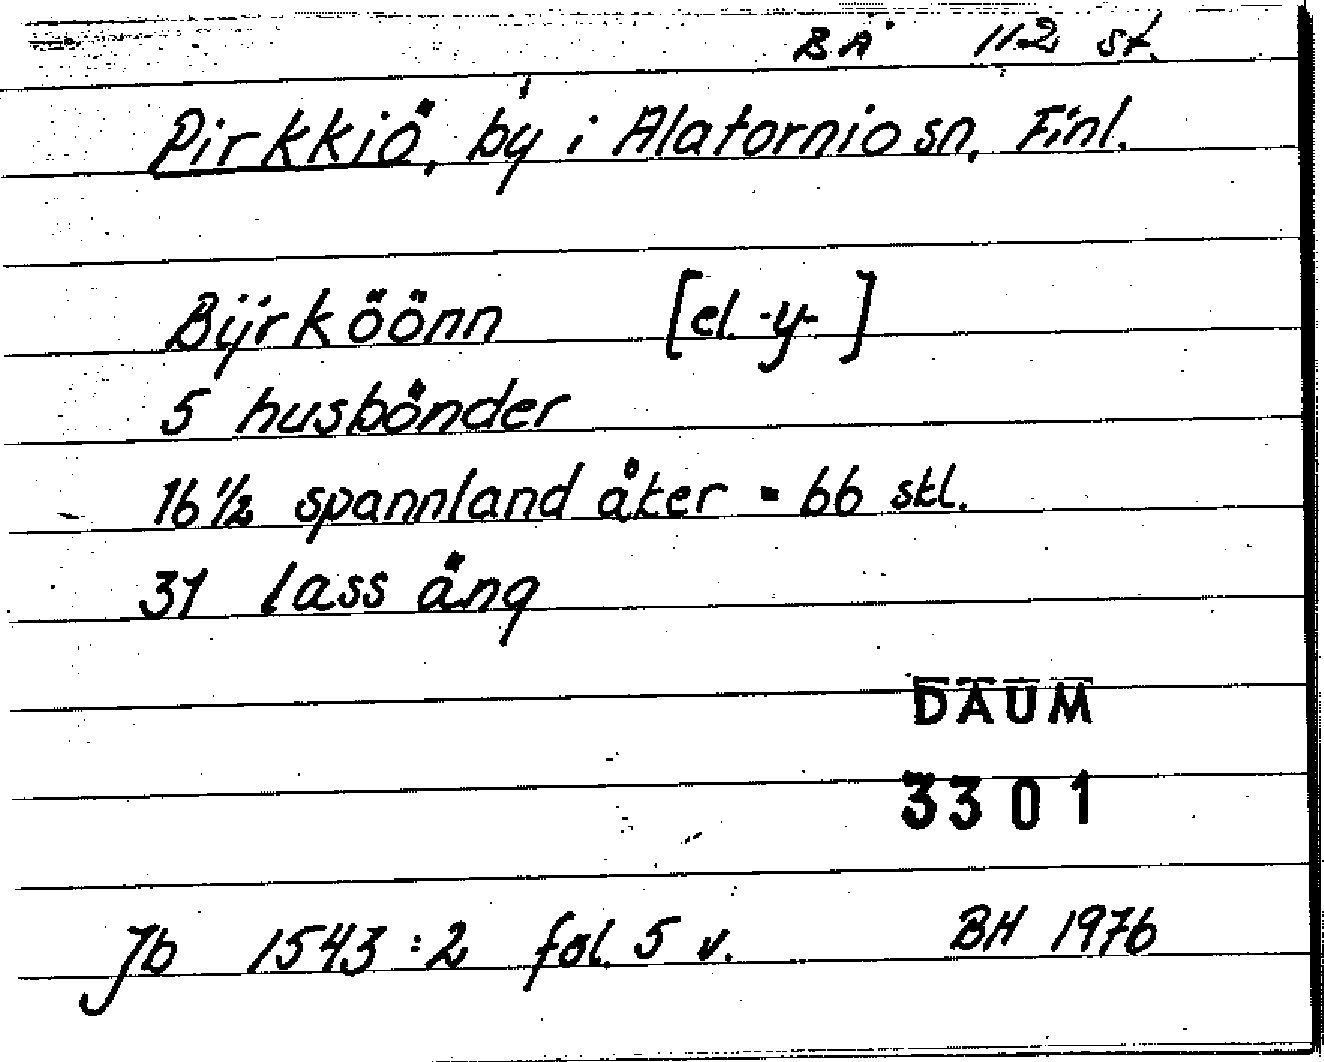 BÄ 112 st.
Pirkkiö, by i Alatornio sn, Finl.
Bijrköönn [el. -y-]
5 husbönder
16 1/2 spannland åker = 66 skl.
31 lass äng
DAUM
3301
Jb 1543:2 fol. 5 v. BH 1976